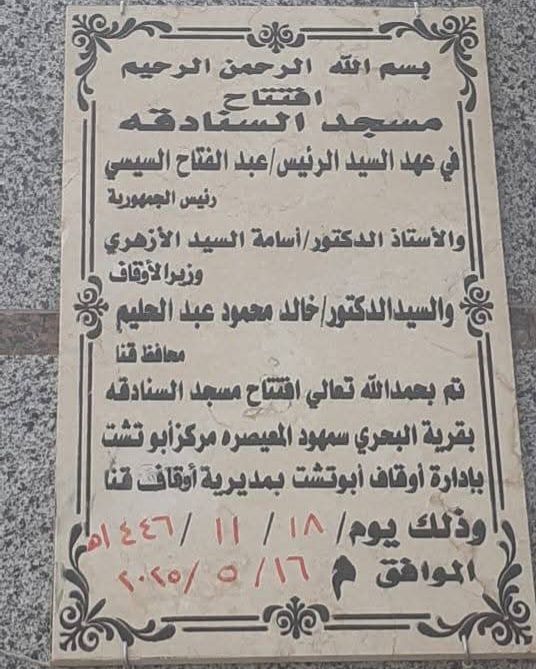 بسم الله الرحمن الرحيم
افتتاح
مسجد السنادقه
في عهد السيد الرئيس/عبد الفتاح السيسي
رئيس الجمهورية
والأستاذ الدكتور/أسامة السيد الأزهري
وزير الأوقاف
والسيد الدكتور/خالد محمود عبد الحليم
محافظ قنا
تم بحمد الله تعالي افتتاح مسجد السنادقه
بقرية البحري سمهود المعيصره مركز أبو تشت
بإدارة أوقاف أبوتشت بمديرية أوقاف قنا
وذلك يوم/ ١٨ / ١١ / ١٤٤٦هـ
الموافق م ١٦/ ٥ /٢٠٢٥